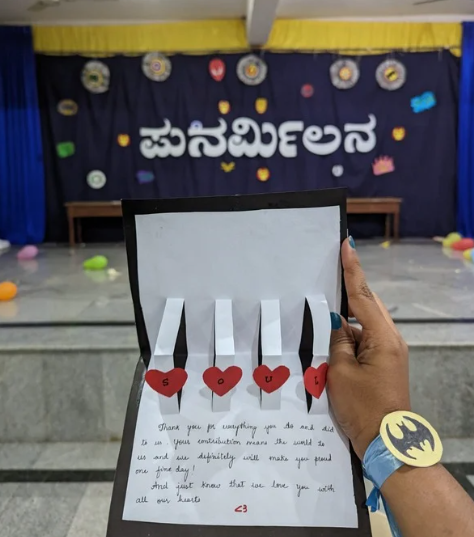 ಪುನರ್ಮಿಲನ
S O U L
Thank you for everything you do and did
to us. Your contribution means the world to
us and we definitely will make you proud
one fine day!
And just know that we love you with
all our hearts
<3